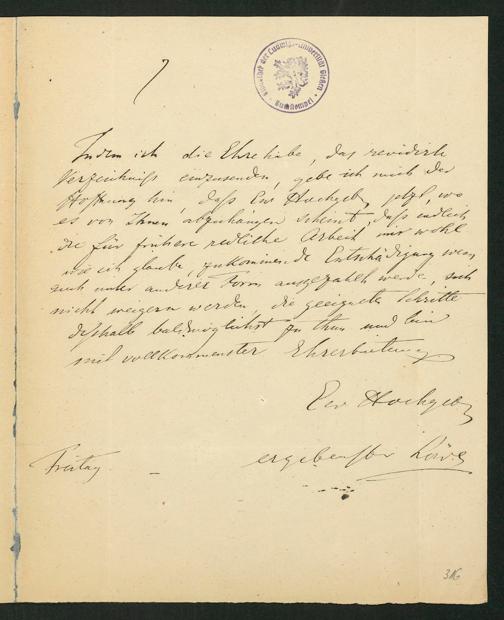 Bibliothek der Ludwigs-Universität Gießen
Tauschstempel
Indem ich die Ehre habe, das revidirte
Verzeichniß einzusenden, gebe ich mich der
Hoffnung hin, daß Ew Hochgeb, jetzt, wo
es von Ihnen abzuhängen scheint, daß endlich
die für frühere redliche Arbeit mir wohl
wie ich glaube, zukommende Entschädigung wenn
auch unter anderer Form ausgezahlt werde, sich
nicht weigern werden die geeigneten Schritte
deshalb baldmöglichst zu thun und bin
mit vollkommenster Ehrerbietung
Ew Hochgeb
Freitag.
ergebenster
316